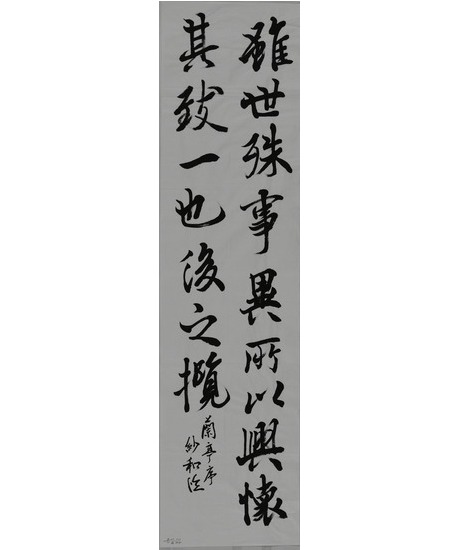 雖世殊事異所以興懷
其致一也後之攬
蘭亭序